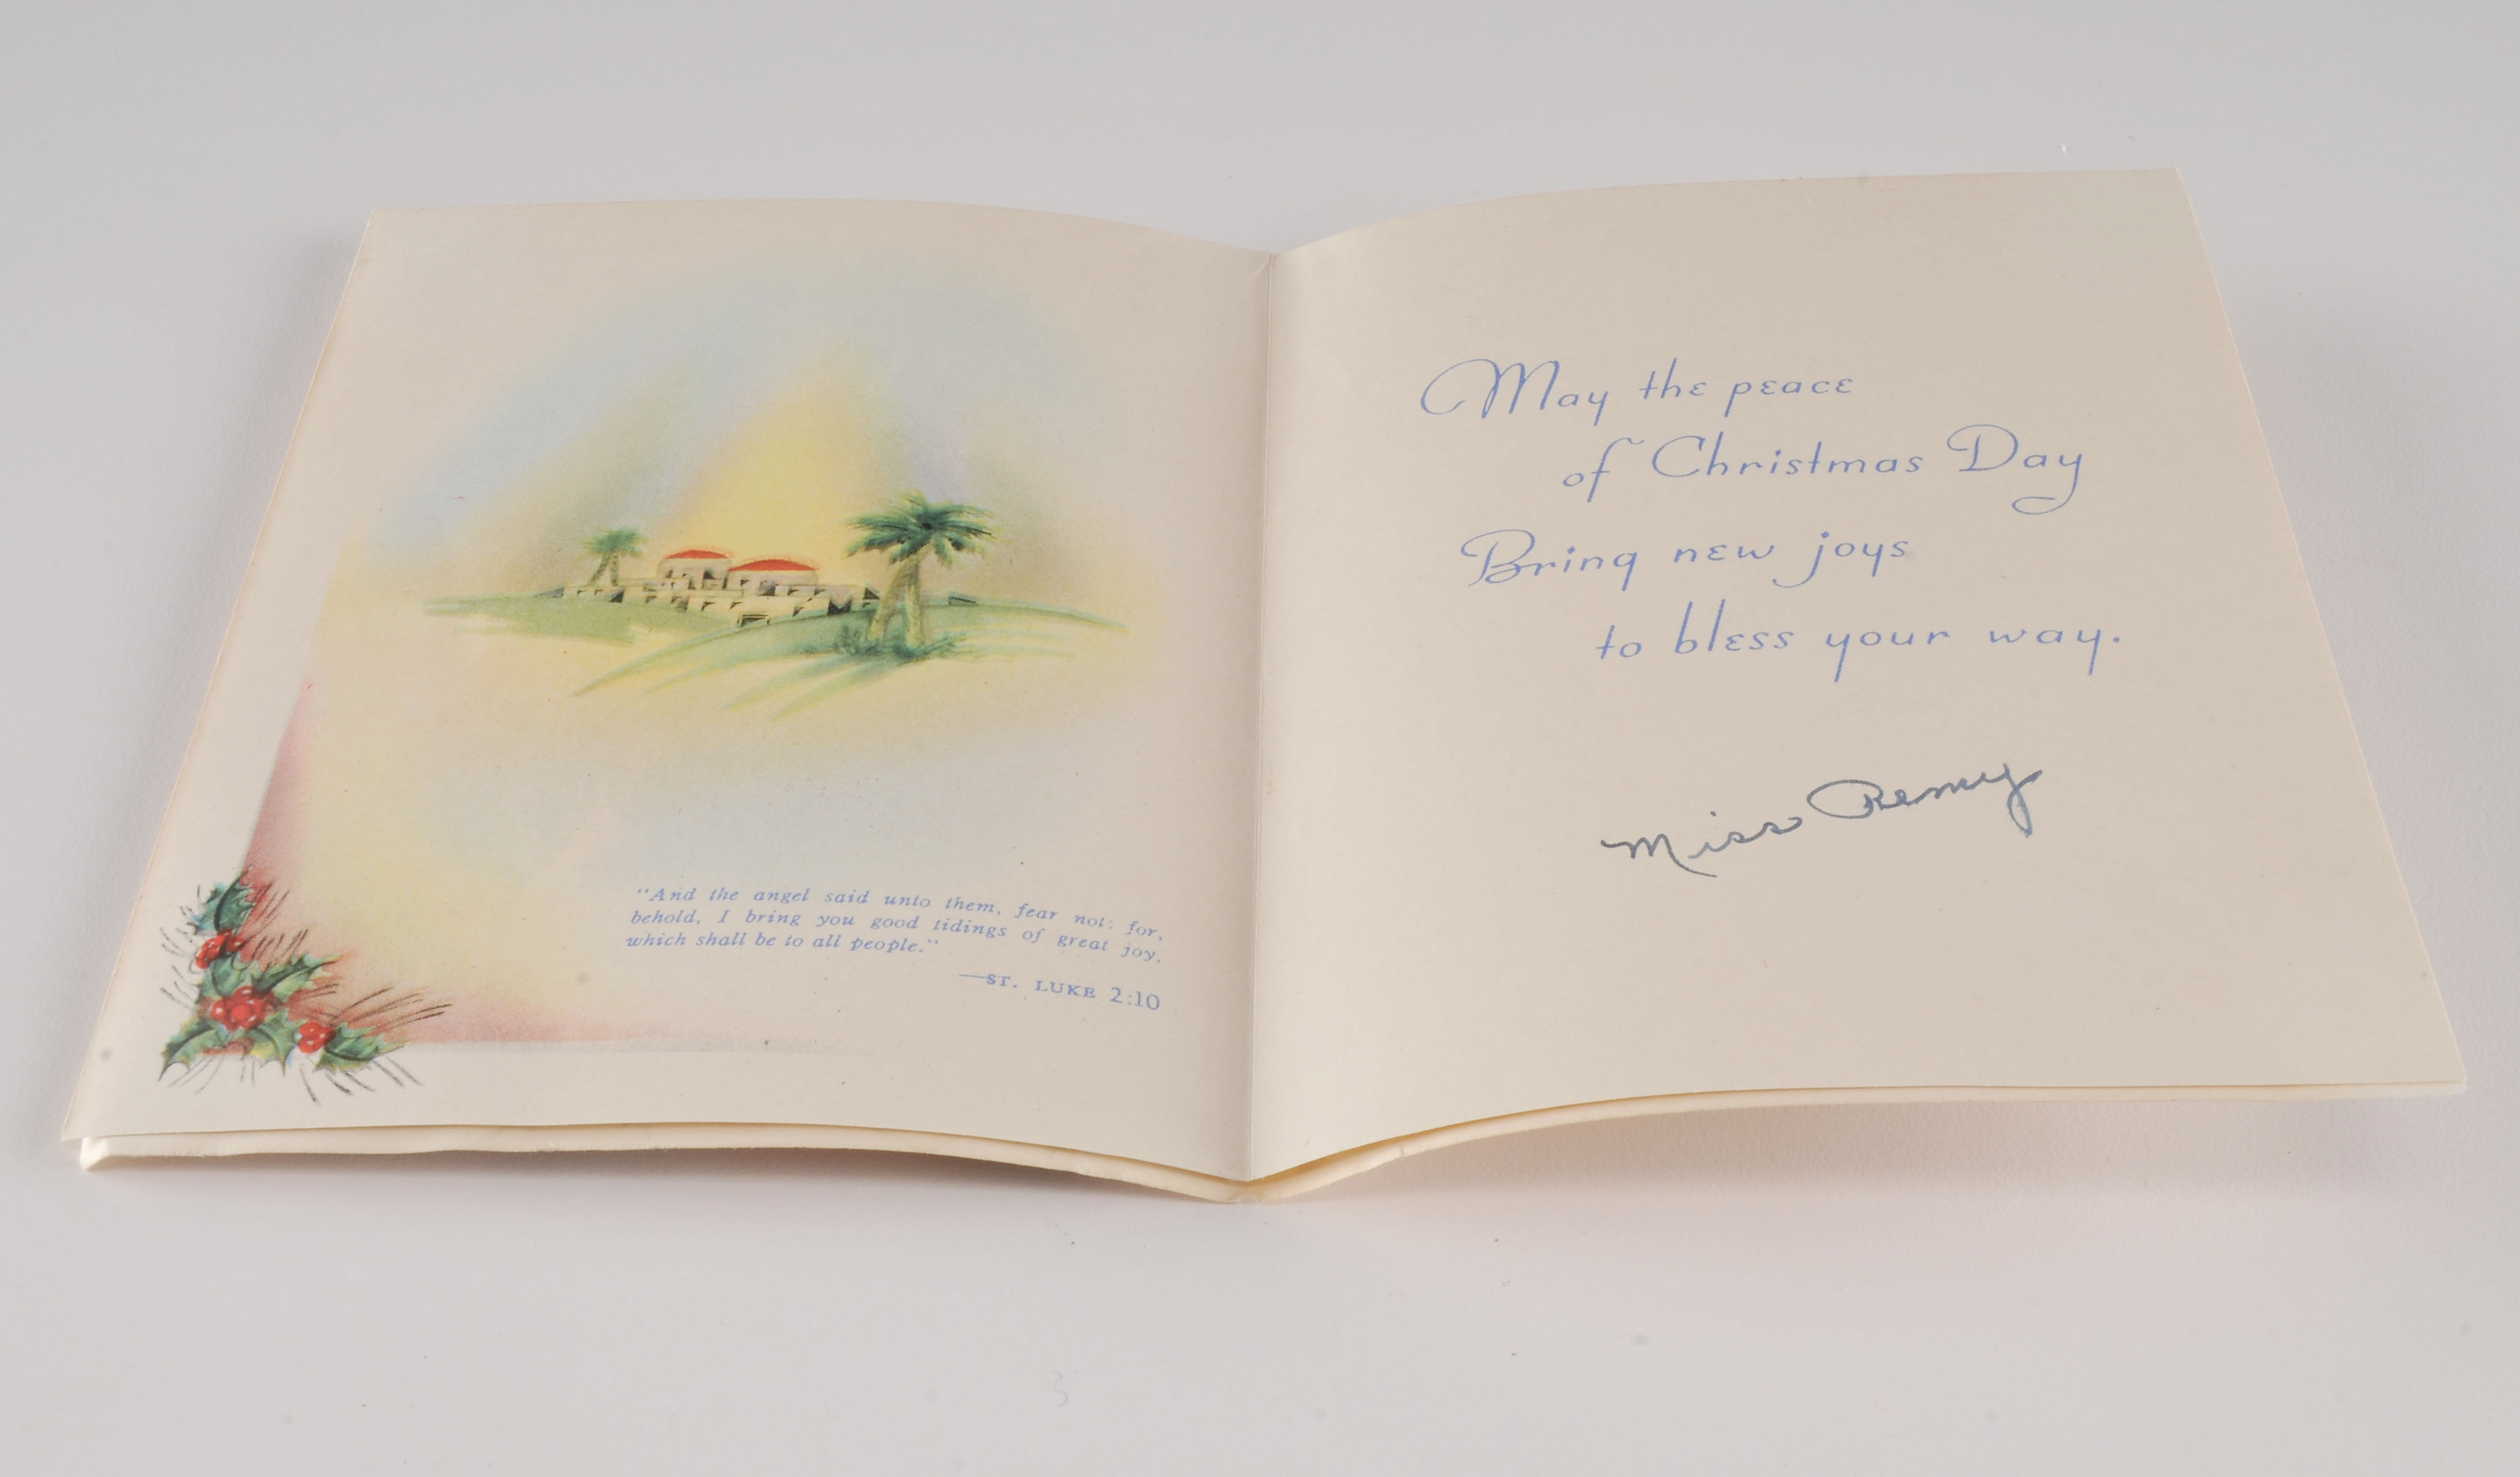 "And the angel said unto them, fear not: for,
behold, I bring you good tidings of great joy,
which shall be to all people."
—ST. LUKE 2:10
May the peace
of Christmas Day
Bring new joys
to bless your way.
Miss Remy